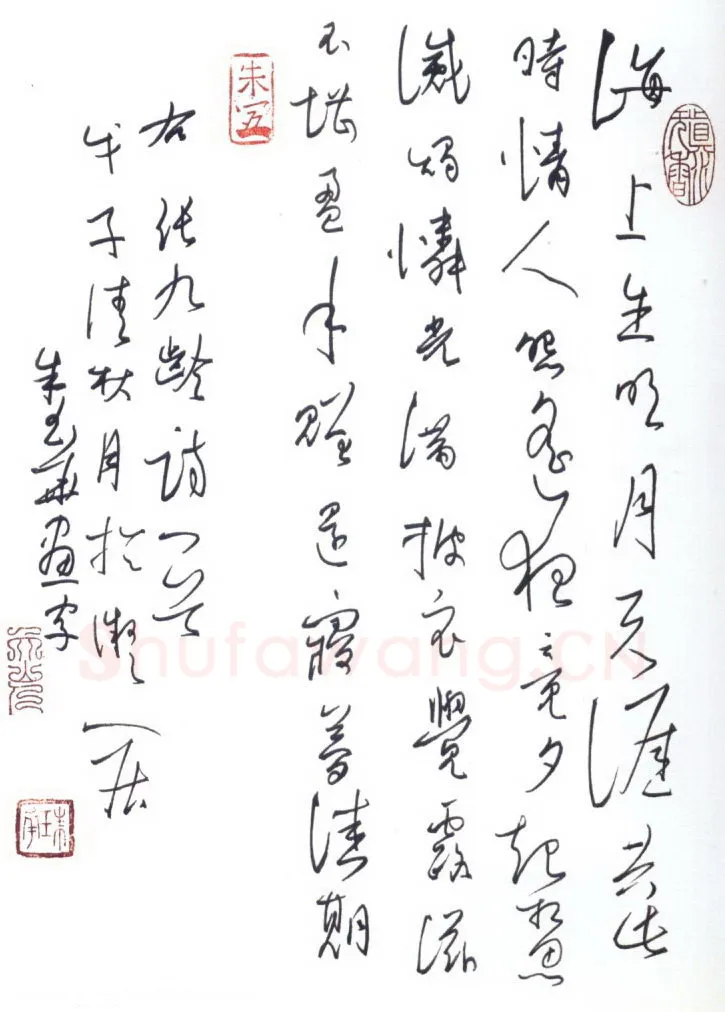 海上生明月天涯共此
時情人怨遙夜竟夕起相思
滅燭憐光滿披衣覺露滋
不堪盈手贈還寢夢佳期
右張九齡詩一首
子清秋月於居
朱畫字
Shufawang.CN